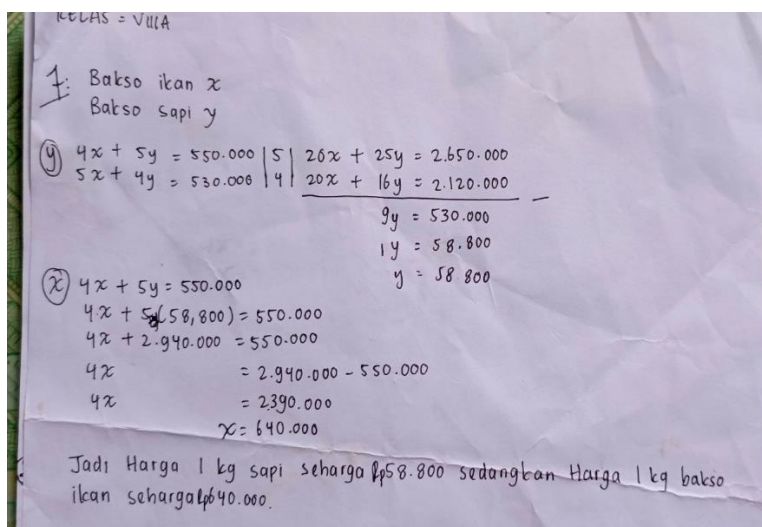 KELAS = VIIIA
1. Bakso ikan x
Bakso sapi y
y 4x + 5y = 550.000 | 5 | 20x + 25y = 2.650.000
5x + 4y = 530.000 | 4 | 20x + 16y = 2.120.000 —
9y = 530.000
1y = 58.800
y = 58.800
x 4x + 5y = 550.000
4x + 5(58,800) = 550.000
4x + 2.940.000 = 550.000
4x = 2.940.000 - 550.000
4x = 2390.000
x = 640.000
Jadi Harga 1 kg sapi seharga Rp58.800 sedangkan Harga 1 kg bakso
ikan seharga Rp640.000.